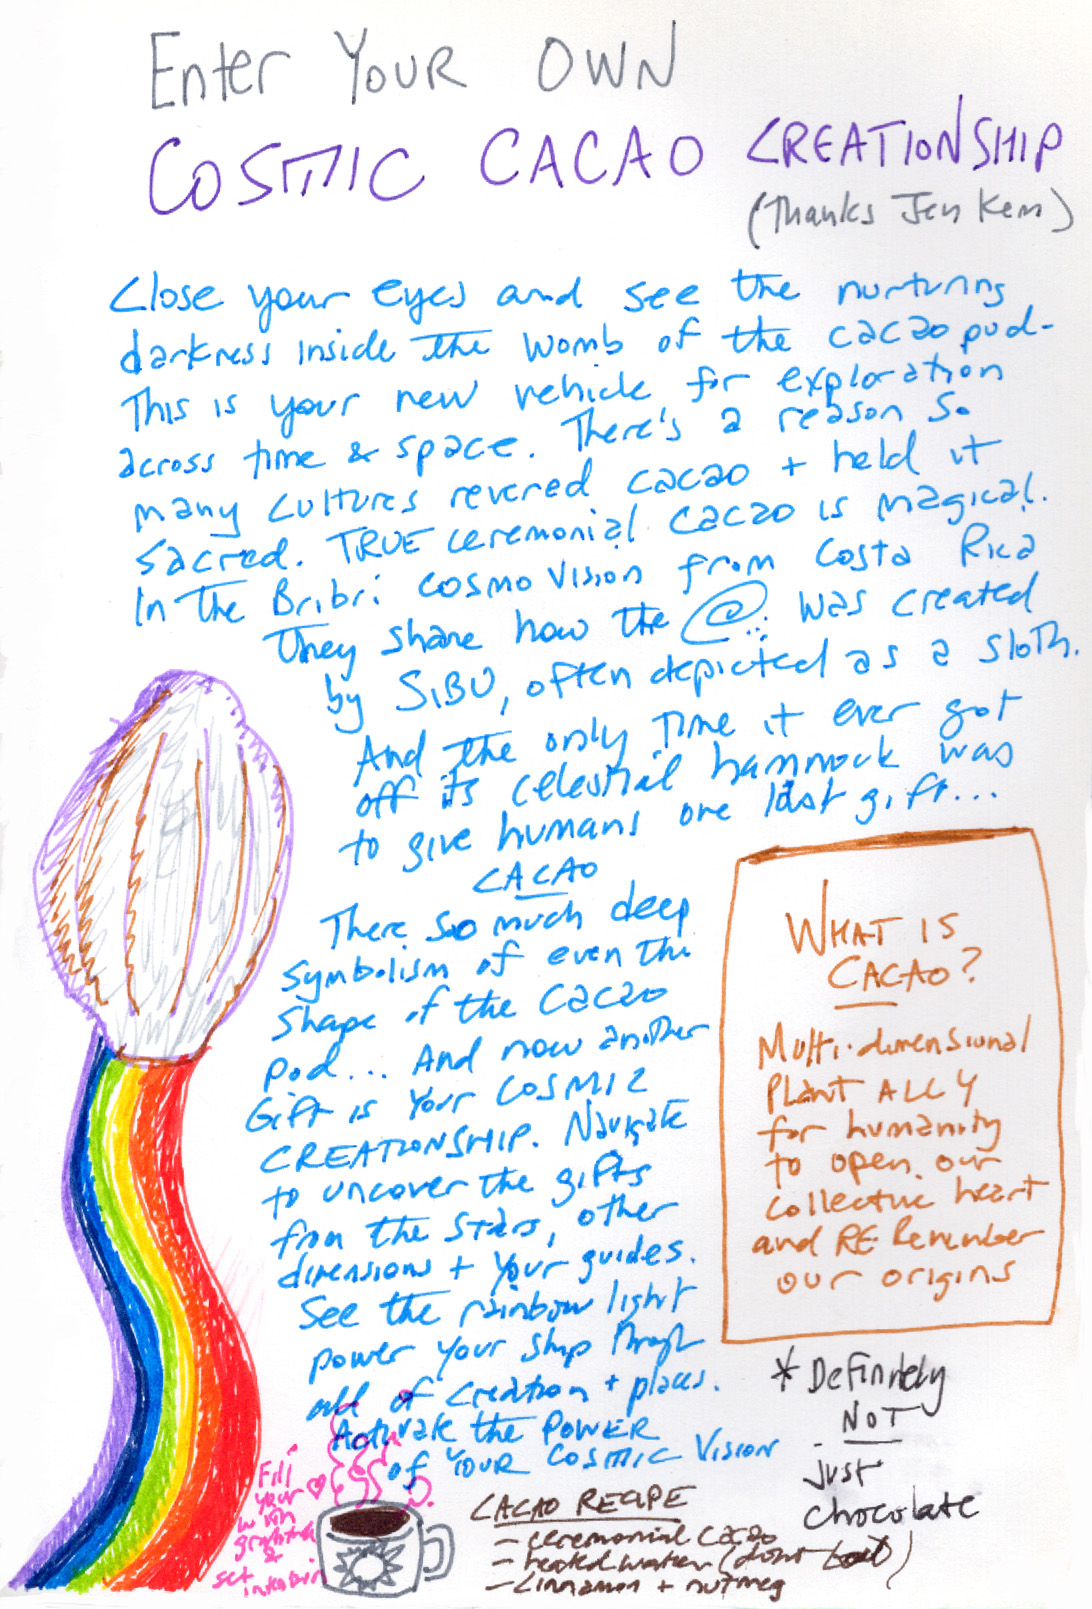 Enter YOUR OWN
COSMIC CACAO CREATIONSHIP
(Thanks Jen Kem)
Close your eyes and see the nurturing
darkness inside the womb of the cacao pod-
This is your new vehicle for exploration
across time & space. There's a reason so
many cultures revered cacao + held it
sacred. TRUE ceremonial cacao is magical.
In the Bribri cosmovision from Costa Rica
They share how the @ was created
by SIBU, often depicted as a sloth.
And the only time it ever got
off its celestial hammock was
to give humans one last gift...
CACAO
There so much deep
symbolism of even the
shape of the cacao
pod... And now another
Gift is Your COSMIC
CREATIONSHIP. Navigate
to uncover the gifts
from the stars, other
dimensions + your guides.
See the rainbow light
power your ship through
all of creation + places.
Activate the POWER
of YOUR COSMIC VISION
WHAT IS
CACAO?
Multi-dimensional
Plant ALLY
for humanity
to open our
collective heart
and RE-Remember
our origins
* Definitely
NOT
just
chocolate
Fill
your
w
&
set
CACAO RECIPE
- ceremonial cacao
- heated water (dont boil)
- Cinnamon + nutmeg